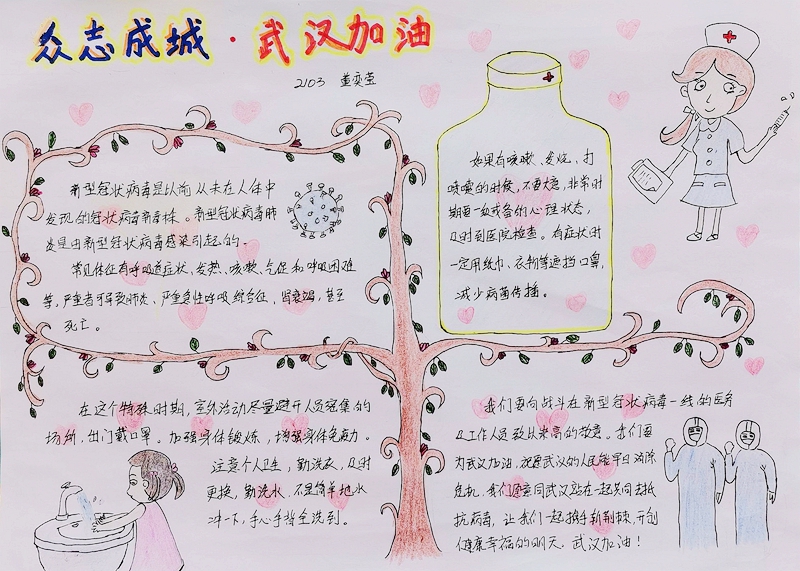 众志成城·武汉加油
2103 董奕莹
新型冠状病毒是以前从未在人体中
发现的冠状病毒新毒株。新型冠状病毒肺
炎是由新型冠状病毒感染引起的。
常见体征有呼吸道症状、发热、咳嗽、气促和呼吸困难
等,严重者可导致肺炎、严重急性呼吸综合征,肾衰竭,甚至
死亡。
如果有咳嗽、发烧、打
喷嚏的时候,不要大意,非常时
期要一级戒备的心理状态,
及时到医院检查。有症状时
一定用纸巾、衣物等遮挡口鼻,
减少病菌传播。
在这个特殊时期,室外活动尽量避开人员密集的
场所,出门戴口罩。加强身体锻炼,增强身体免疫力。
注意个人卫生,勤洗衣,及时
更换,勤洗水,不是简单地水
冲一下,手心手背全洗到。
我们要向战斗在新型冠状病毒一线的医务
及工作人员致以崇高的敬意。我们要
为武汉加油,祝愿武汉的人民能早日消除
危机。我们愿意同武汉站在一起共同去抵
抗病毒,让我们一起携手斩荆棘,开创
健康幸福的明天。武汉加油!